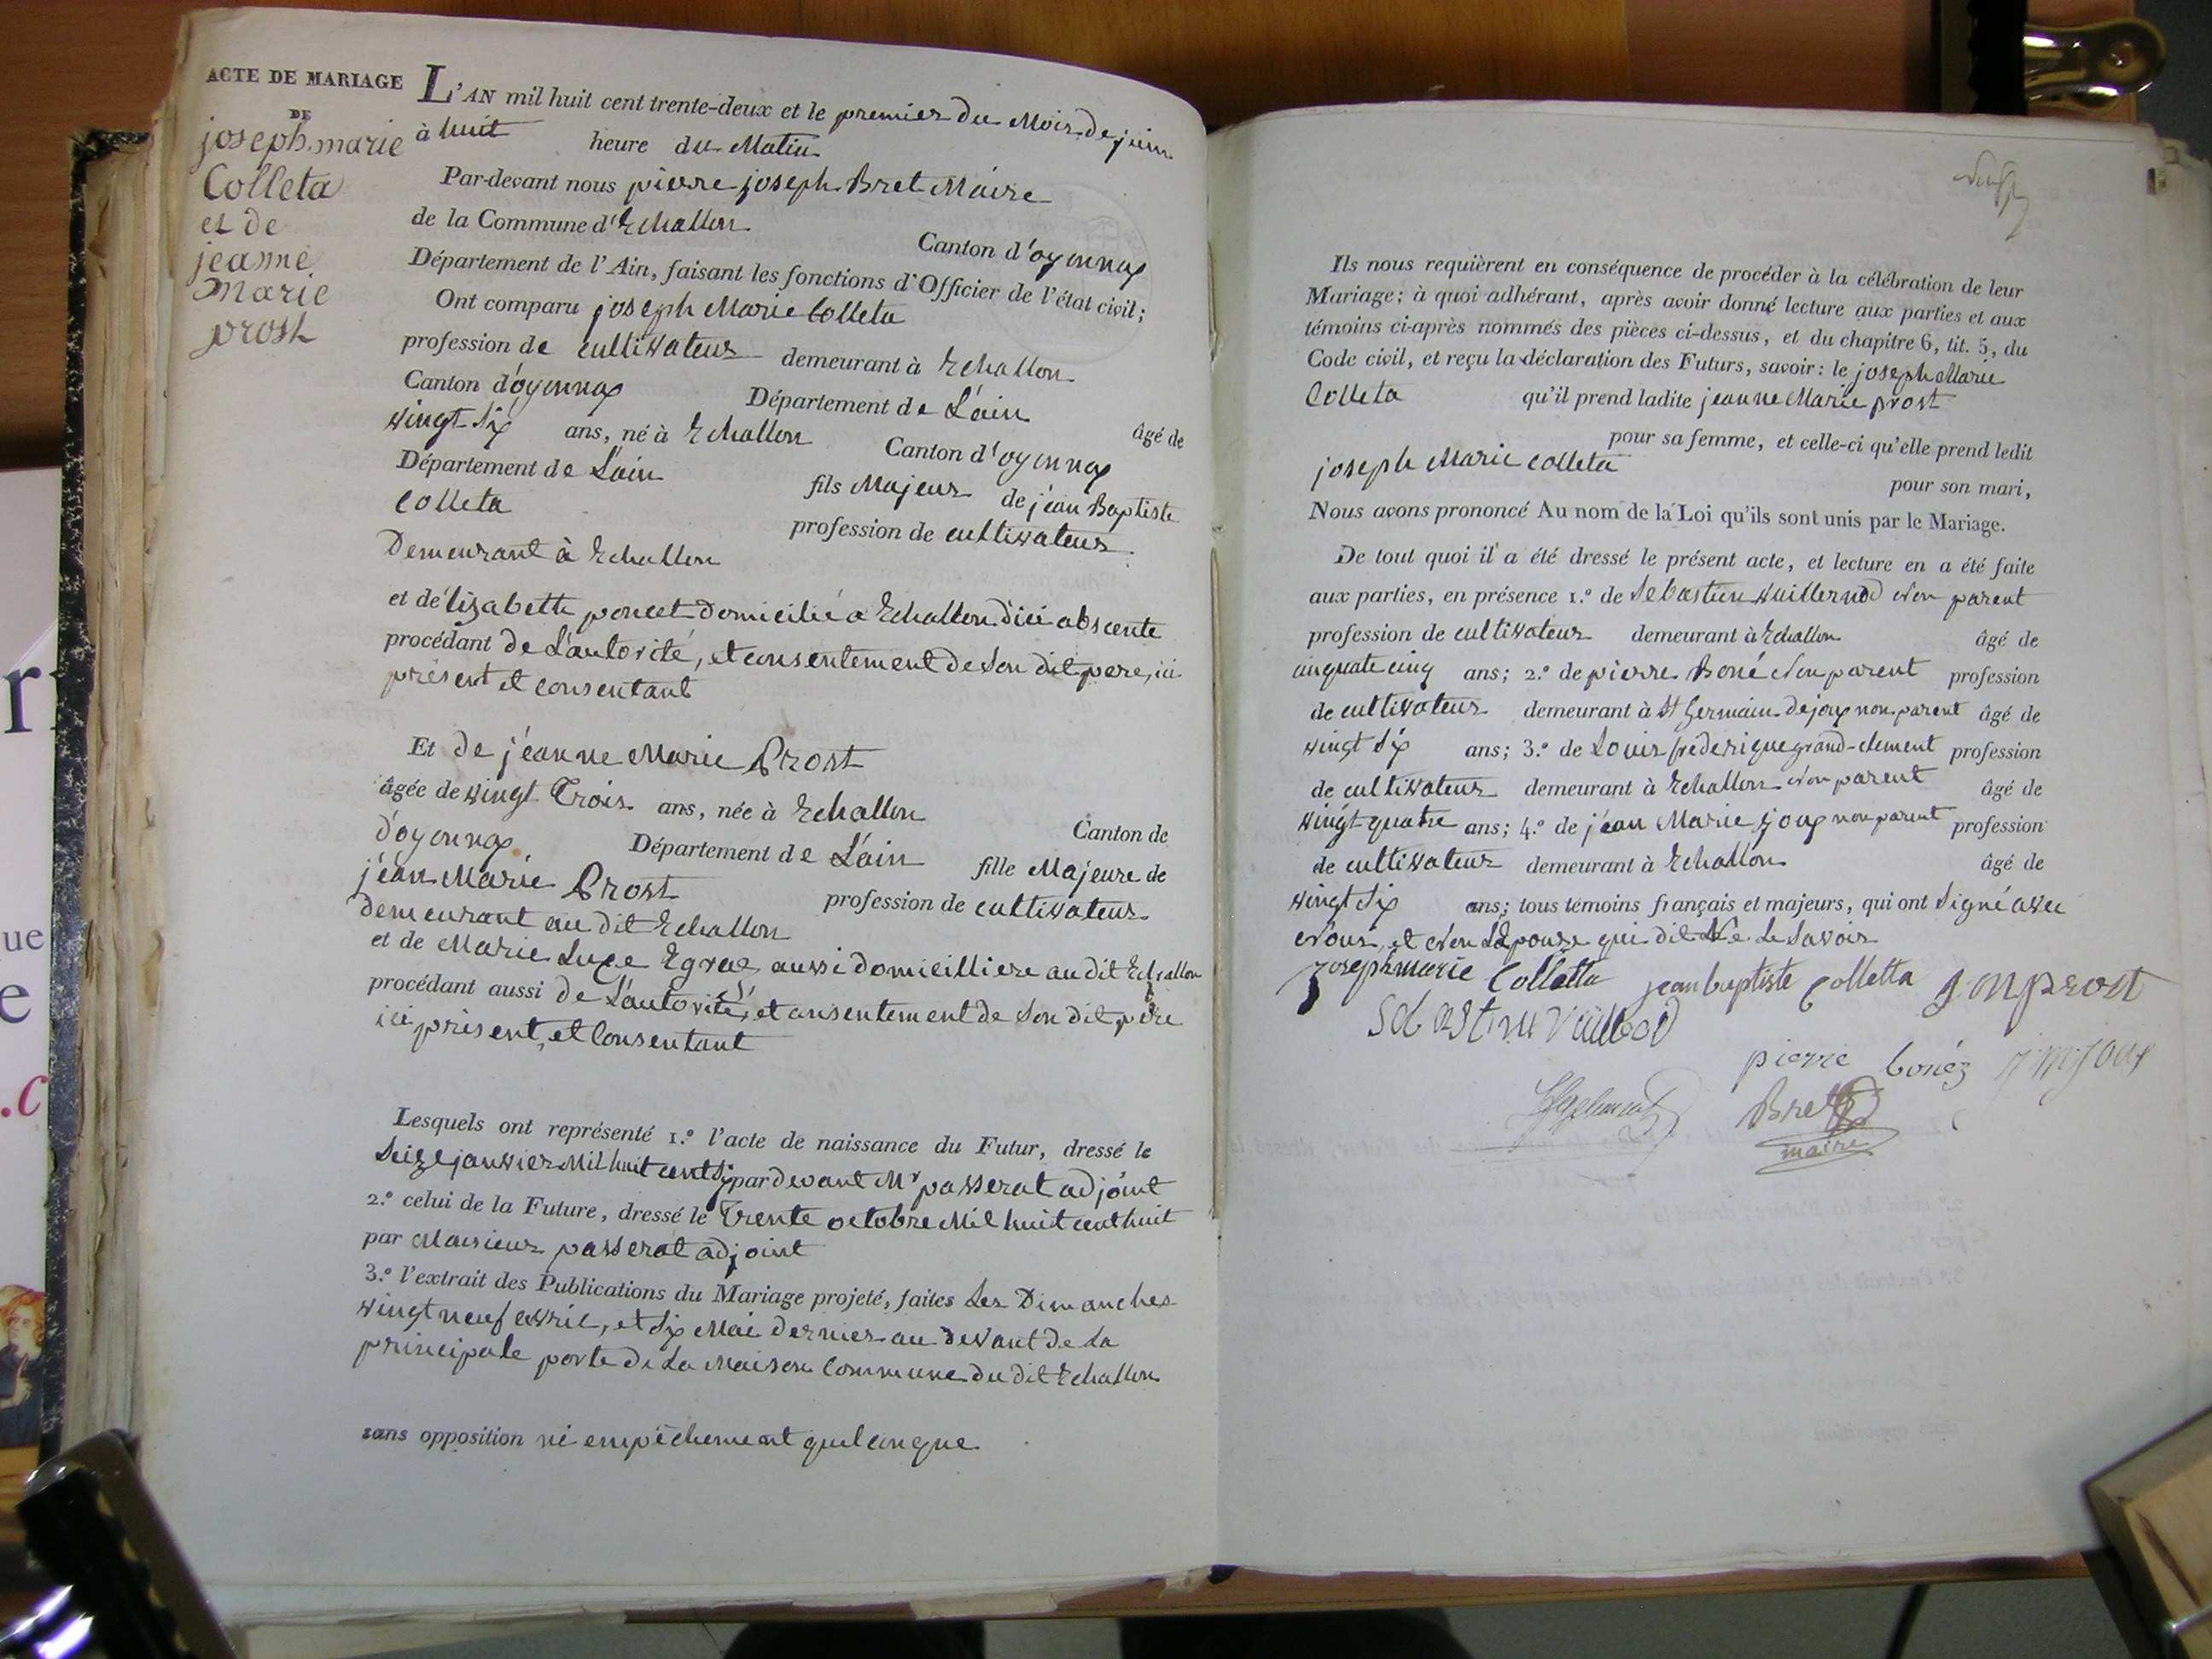 ACTE DE MARIAGE
DE
joseph marie
Colleta
et de
jeanne
marie
prost
L'AN mil huit cent trente-deux et le premier du Mois de juin
à huit heure du Matin
Par-devant nous pierre joseph Bret Maire
de la Commune d'Echallon Canton d'oyonnax
Département de l'Ain, faisant les fonctions d'Officier de l'état civil;
Ont comparu joseph Marie Colleta
profession de cultivateur demeurant à Echallon
Canton d'oyonnax Département de L'ain âgé de
vingt Six ans, né à Echallon Canton d'oyonnax
Département de L'ain fils Majeur de jéan Baptiste
Colleta profession de cultivateur
Demeurant à Echallon
et de élizabette poncet domicilié a Echallon d'ici abscente
procédant de L'autorité, et consentement de Son dit pere, ici
présent et consentant
Et de jéanne Marie Prost
âgée de vingt Trois ans, née à Echallon Canton de
d'oyonnax Département de L'ain fille Majeure de
jéan Marie Prost profession de cultivateur
demeurant au dit Echallon
et de Marie Luce Egraz aussi domicilliere au dit Echallon
procédant aussi de L'autorité, et consentement de Son dit père
ici présent, et Consentant
Lesquels ont représenté 1.º l'acte de naissance du Futur, dressé le
Seize janvier Mil huit cent Six par devant Mr passerat adjoint
2.º celui de la Future, dressé le Trente octobre Mil huit cent huit
par Monsieur passerat adjoint
3.º l'extrait des Publications du Mariage projeté, faites Les Dimanches
vingt neuf avril, et Six Mai dernier au devant de La
principale porte de La Maison Commune du dit Echallon
sans opposition ni empêchement quelconque
Ils nous requièrent en conséquence de procéder à la célébration de leur
Mariage; à quoi adhérant, après avoir donné lecture aux parties et aux
témoins ci-après nommés des pièces ci-dessus, et du chapitre 6, tit. 5, du
Code civil, et reçu la déclaration des Futurs, savoir: le joseph Marie
Colleta qu'il prend ladite jeanne Marie prost
pour sa femme, et celle-ci qu'elle prend ledit
joseph Marie colleta pour son mari,
Nous avons prononcé Au nom de la Loi qu'ils sont unis par le Mariage.
De tout quoi il a été dressé le présent acte, et lecture en a été faite
aux parties, en présence 1.º de Sebastien Vuillermod Non parent
profession de cultivateur demeurant à Echallon âgé de
cinquate cinq ans; 2.º de pierre Boné Non parent profession
de cultivateur demeurant à St Germain de joux non parent âgé de
vingt Six ans; 3.º de Louis fréderique grand-clement profession
de cultivateur demeurant à Echallon Non parent âgé de
vingt quatre ans; 4.º de jéan Marie joux non parent profession
de cultivateur demeurant à Echallon âgé de
vingt Six ans; tous témoins français et majeurs, qui ont Signé avec
Nous, et Non Lépouse qui dit Ne Le Savoir
Josephmarie Colletta jean baptiste Colletta
pierre bonéz j m joux
Bret
maire